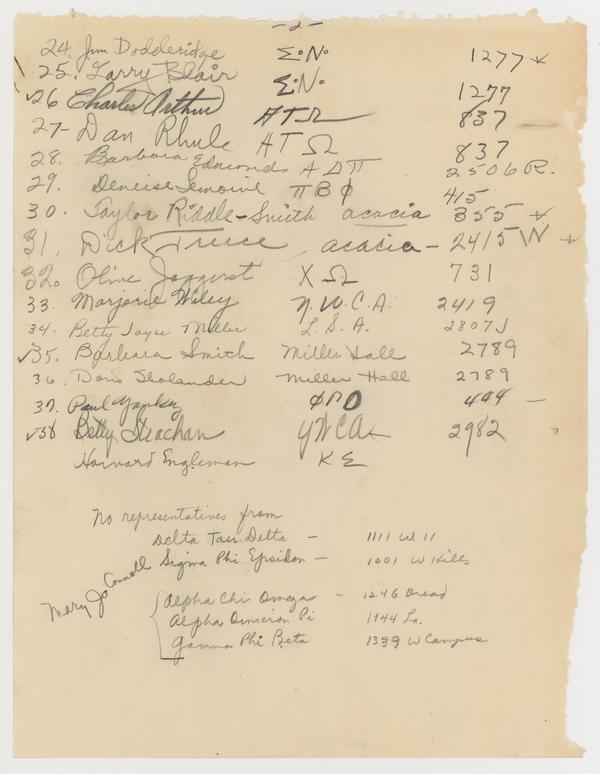 -2-
24. Jim Dodderidge Σ.N. 1277
25. Larry Blair Σ.N. 1277
✓26 Charles Arthur ATΩ 837 —
27- Dan Rhule ATΩ 837
28. Barbara Edmonds AΔΠ 2506R.
29. Deneise Lemoine ΠBΦ 415
30. Taylor Riddle-Smith acacia 355
31. Dick Truce acacia - 2415W
32. Olive XΩ 731
33. Marjorie Wiley Y.W.C.A. 2419
34. Betty Joyce Miller L.S.A. 2807J
✓35. Barbara Smith Miller Hall 2789
36. Doris Sholander Miller Hall 2789
37. Paul Yankey 444 —
✓38 Betty Strachan YWCA 2982
Harvard Engleman KΣ
No representatives from
Delta Tau Delta - 1111 W 11
Sigma Phi Epsilon - 1001 W Hills
Mary Jo Connell
Alpha Chi Omega - 1246 Oread
Alpha Omicron Pi 1144 La.
Gamma Phi Beta 1339 W Campus